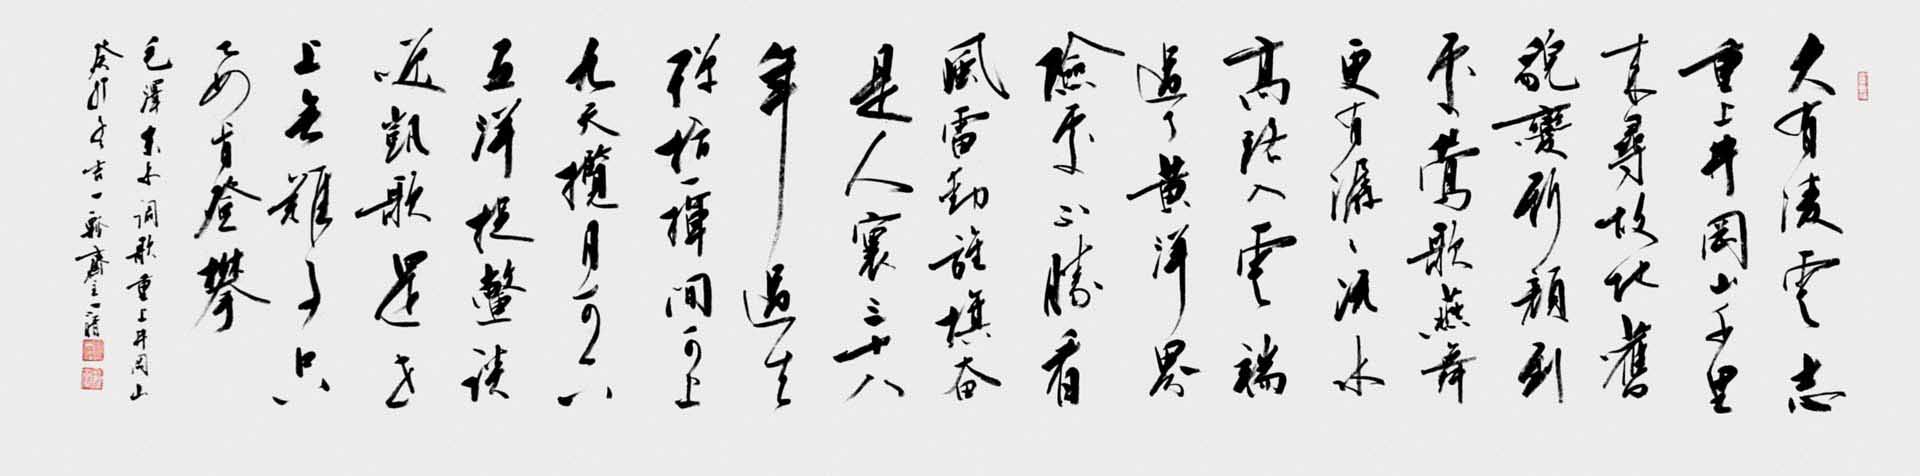 久有凌雲志
重上井岡山千里
来尋故地舊
貌變新顔到
處鶯歌燕舞
更有潺〻流水
高路入雲端
過了黄洋界
險處不勝看
風雷動旗奋
是人寰三十八
年過去
彈指一揮間可上
九天攬月可下
五洋捉鱉談
笑凱歌還世
上無難事只
要肯登攀
毛澤東水調歌重上井岡山
癸卯冬吉一齋主一清